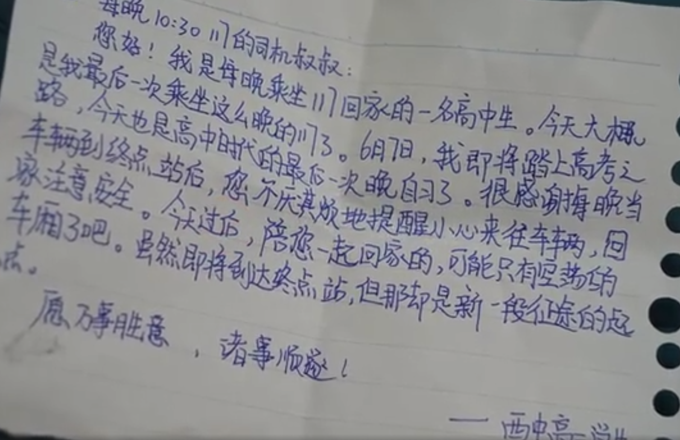 每晚10:30 117的司机叔叔：
您好！我是每晚乘坐117回家的一名高中生。今天大概
是我最后一次乘坐这么晚的117了。6月7日，我即将踏上高考之
路，今天也是高中时代的最后一次晚自习了。很感谢每晚当
车辆到终点站后，您不厌其烦地提醒小心来往车辆，回
家注意安全。今天过后，陪您一起回家的，可能只有空荡的
车厢了吧。虽然即将到达终点站，但那却是新一段征途的起
点。
愿万事胜意，诸事顺遂！
——西中高一学